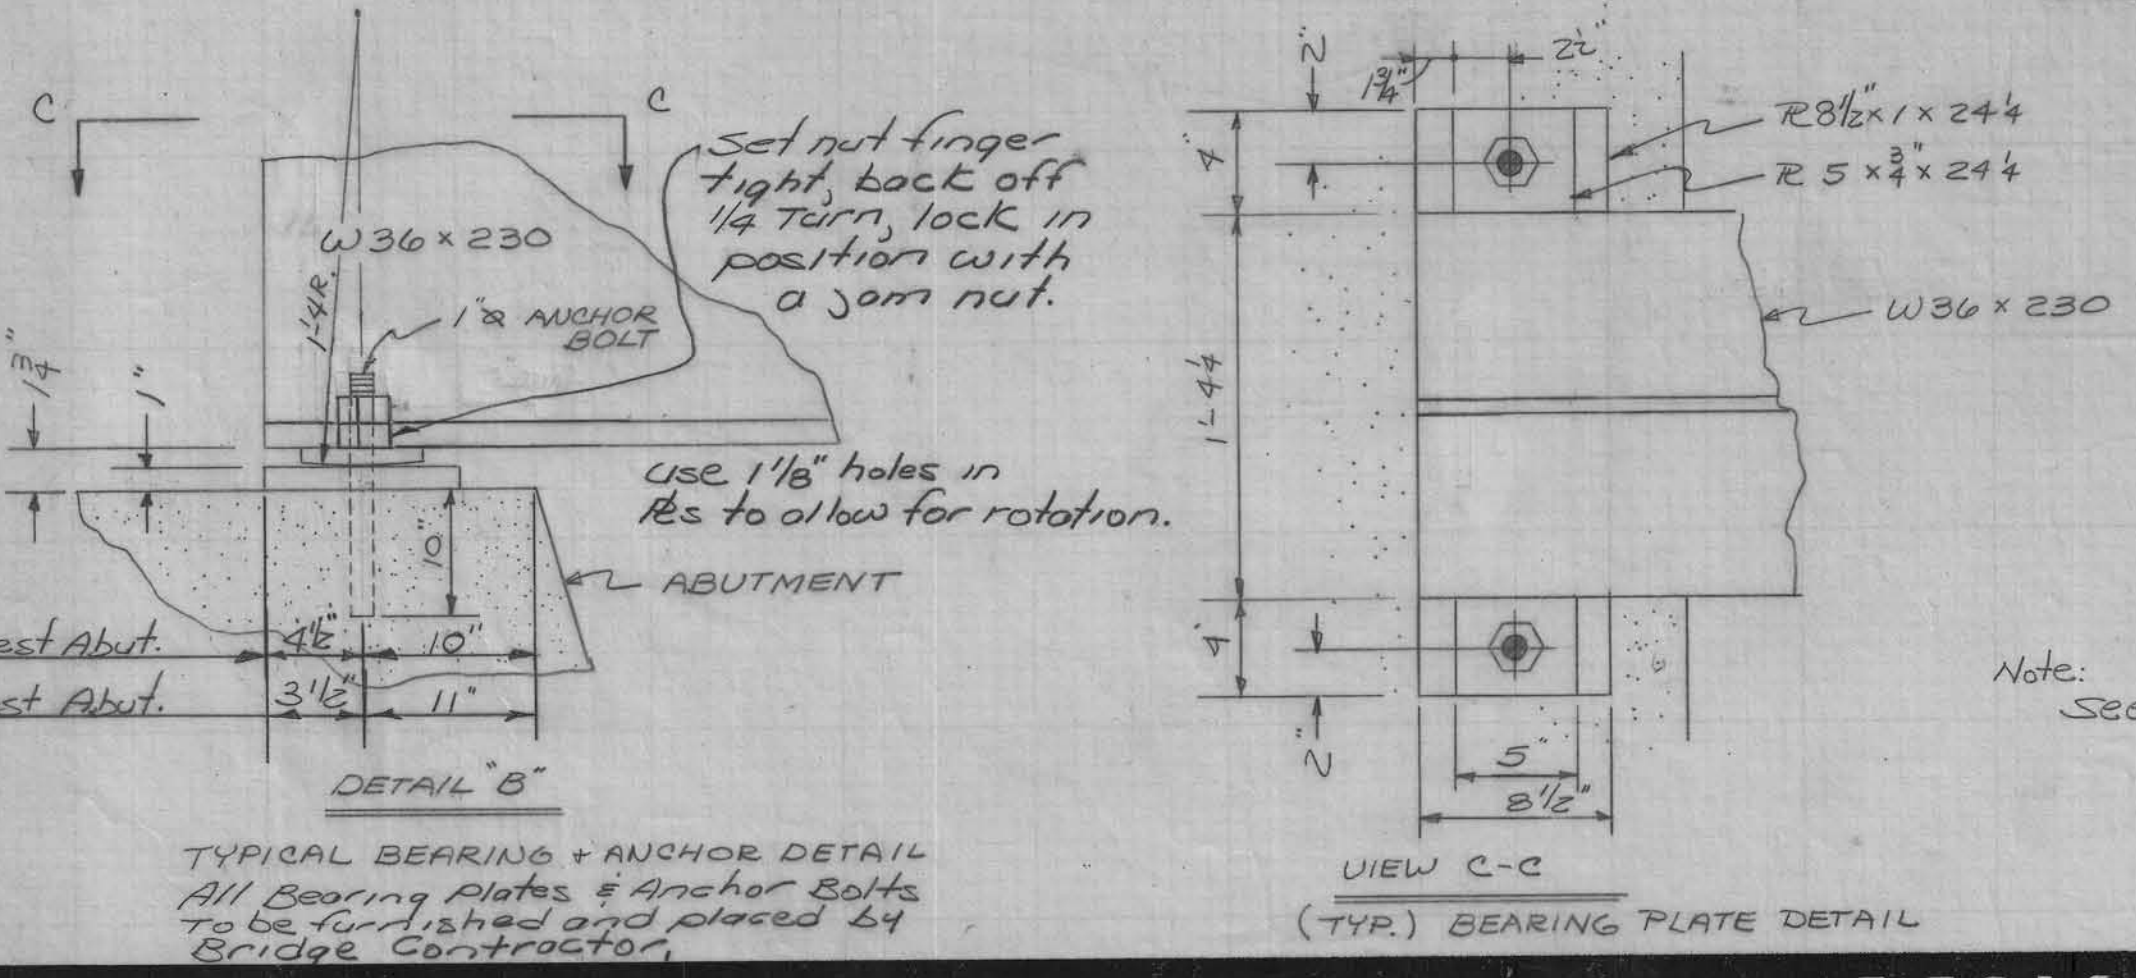 C
C
Set nut finger
tight, back off
1/4 Turn, lock in
position with
a jam nut.
W 36 × 230
1'-4 R.
1"ø ANCHOR
BOLT
1 3/4"
1"
use 1 1/8" holes in
PLs to allow for rotation.
10"
ABUTMENT
est Abut.
4 1/2"
10"
st Abut.
3 1/2"
11"
DETAIL "B"
TYPICAL BEARING + ANCHOR DETAIL
All Bearing Plates & Anchor Bolts
To be furnished and placed by
Bridge Contractor.
2"
1 3/4"
2 1/2"
4"
PL 8 1/2" × 1 × 24 1/4
PL 5 × 3/4" × 24 1/4
W 36 × 230
1'-4 1/4
4"
2"
5"
8 1/2"
VIEW C-C
(TYP.) BEARING PLATE DETAIL
Note:
See